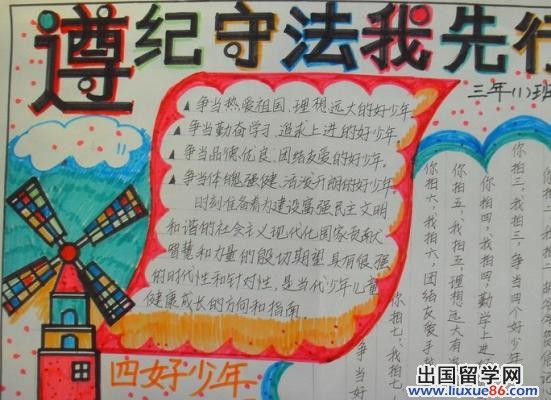 遵纪守法我先行
三年(1)班
▲争当热爱祖国、理想远大的好少年。
▲争当勤奋学习、追求上进的好少年。
▲争当品德优良、团结友爱的好少年。
▲争当体魄强健、活泼开朗的好少年。
时刻准备着为建设富强民主文明
和谐的社会主义现代化国家贡献
智慧和力量的殷切期望具有很强
的时代性和针对性，是当代少年儿童
健康成长的方向和指南。
四好少年
你拍三，我拍三，争当四个好少年
你拍四，我拍四，勤学上进
你拍五，我拍五，理想远大有
你拍六，我拍六，团结友爱手
你拍七，我拍七
争当好
出国留学网
www.liuxue86.com